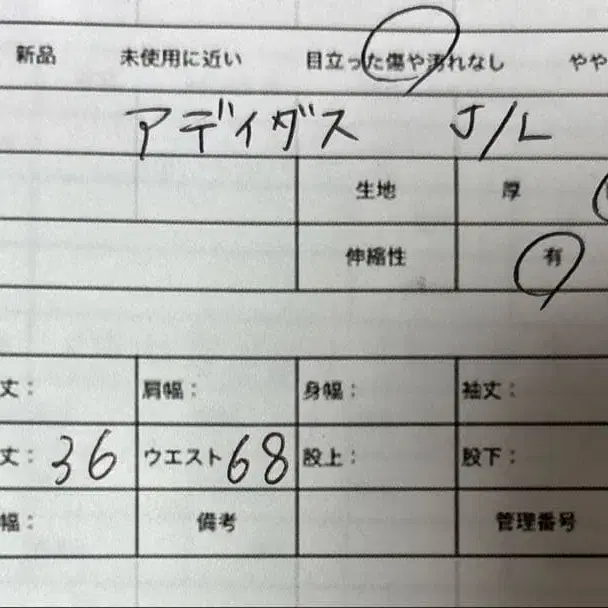 新品 未使用に近い 目立った傷や汚れなし やや
アディダス J/L
生地 厚
伸縮性 有
丈： 肩幅： 身幅： 袖丈：
丈：36 ウエスト68 股上： 股下：
幅： 備考 管理番号